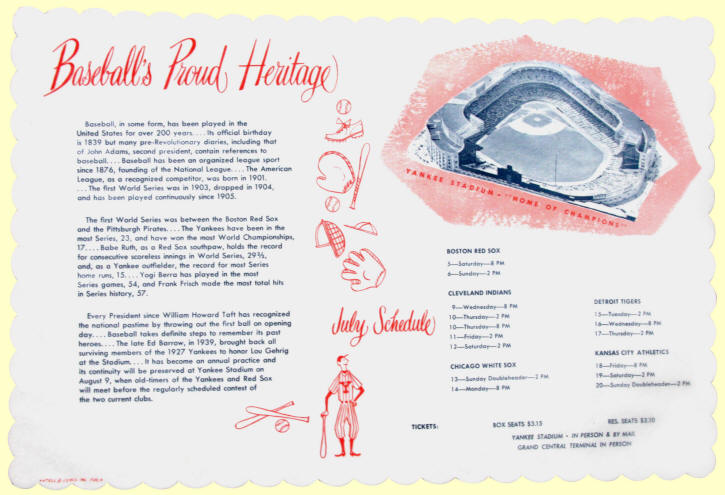 Baseball's Proud Heritage
Baseball, in some form, has been played in the
United States for over 200 years....Its official birthday
is 1839 but many pre-Revolutionary diaries, including that
of John Adams, second president, contain references to
baseball....Baseball has been an organized league sport
since 1876, founding of the National League....The American
League, as a recognized competitor, was born in 1901.
...The first World Series was in 1903, dropped in 1904,
and has been played continuously since 1905.
The first World Series was between the Boston Red Sox
and the Pittsburgh Pirates....The Yankees have been in the
most Series, 23, and have won the most World Championships,
17....Babe Ruth, as a Red Sox southpaw, holds the record
for consecutive scoreless innings in World Series, 29⅔,
and, as a Yankee outfielder, the record for most Series
home runs, 15....Yogi Berra has played in the most
Series games, 54, and Frank Frisch made the most total hits
in Series history, 57.
Every President since William Howard Taft has recognized
the national pastime by throwing out the first ball on opening
day....Baseball takes definite steps to remember its past
heroes....The late Ed Barrow, in 1939, brought back all
surviving members of the 1927 Yankees to honor Lou Gehrig
at the Stadium....It has become an annual practice and
its continuity will be preserved at Yankee Stadium on
August 9, when old-timers of the Yankees and Red Sox
will meet before the regularly scheduled contest of
the two current clubs.
YANKEE STADIUM - "HOME OF CHAMPIONS"
July Schedule
BOSTON RED SOX
5—Saturday—8 PM
6—Sunday—2 PM
CLEVELAND INDIANS
9—Wednesday—8 PM
10—Thursday—2 PM
10—Thursday—8 PM
11—Friday—2 PM
12—Saturday—2 PM
CHICAGO WHITE SOX
13—Sunday Doubleheader—2 PM
14—Monday—8 PM
DETROIT TIGERS
15—Tuesday—2 PM
16—Wednesday—8 PM
17—Thursday—2 PM
KANSAS CITY ATHLETICS
18—Friday—8 PM
19—Saturday—2 PM
20—Sunday Doubleheader—2 PM
TICKETS: BOX SEATS $3.15 RES. SEATS $2.10
YANKEE STADIUM - IN PERSON & BY MAIL
GRAND CENTRAL TERMINAL IN PERSON